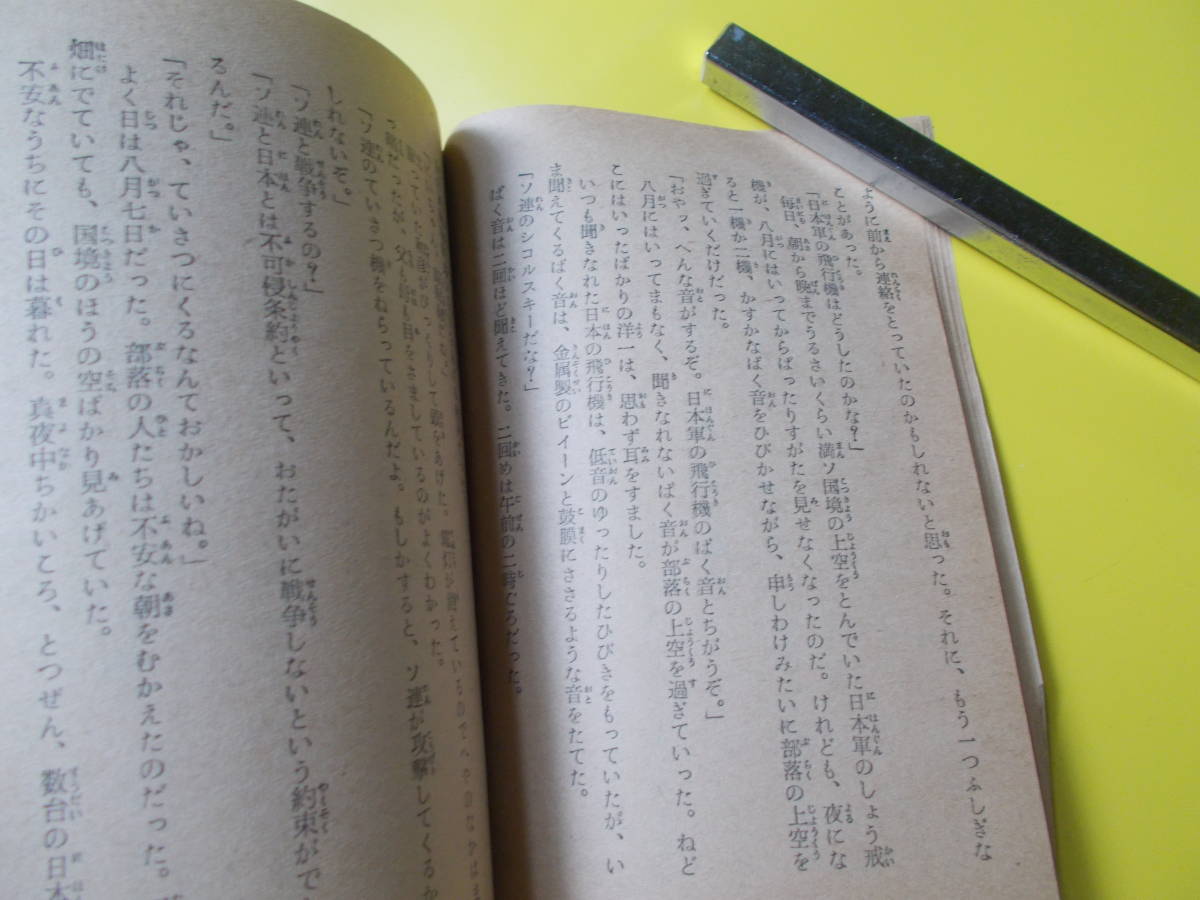 ように前から連絡をとっていたのかもしれないと思った。それに、もう一つふしぎな
ことがあった。
「日本軍の飛行機はどうしたのかな?」
毎日、朝から晩までうるさいくらい満ソ国境の上空をとんでいた日本軍のしょう戒
機が、八月にはいってからぱったりすがたを見せなくなったのだ。けれども、夜にな
ると一機か二機、かすかなばく音をひびかせながら、申しわけみたいに部落の上空を
過ぎていくだけだった。
「おやッ、へんな音がするぞ。日本軍の飛行機のばく音とちがうぞ。」
八月にはいってまもなく、聞きなれないばく音が部落の上空を過ぎていった。ねど
こにはいったばかりの洋一は、思わず耳をすました。
いつも聞きなれた日本の飛行機は、低音のゆったりしたひびきをもっていたが、い
ま聞えてくるばく音は、金属製のビイーンと鼓膜にささるような音をたてた。
「ソ連のシコルスキーだな?」
ばく音は二回ほど聞えてきた。二回めは午前の二時ごろだった。
っ暗だったが、父も母も目をさましているのがよくわかった。
「ソ連のていさつ機をねらっているんだよ。もしかすると、ソ連が攻撃してくるか
しれないぞ。」
「ソ連と戦争するの?」
「ソ連と日本とは不可侵条約といって、おたがいに戦争しないという約束がで
るんだ。」
「それじゃ、ていさつにくるなんておかしいね。」
よく日は八月七日だった。部落の人たちは不安な朝をむかえたのだった。
畑にでていても、国境のほうの空ばかり見あげていた。
不安なうちにその日は暮れた。真夜中ちかいころ、とつぜん、数台の日本